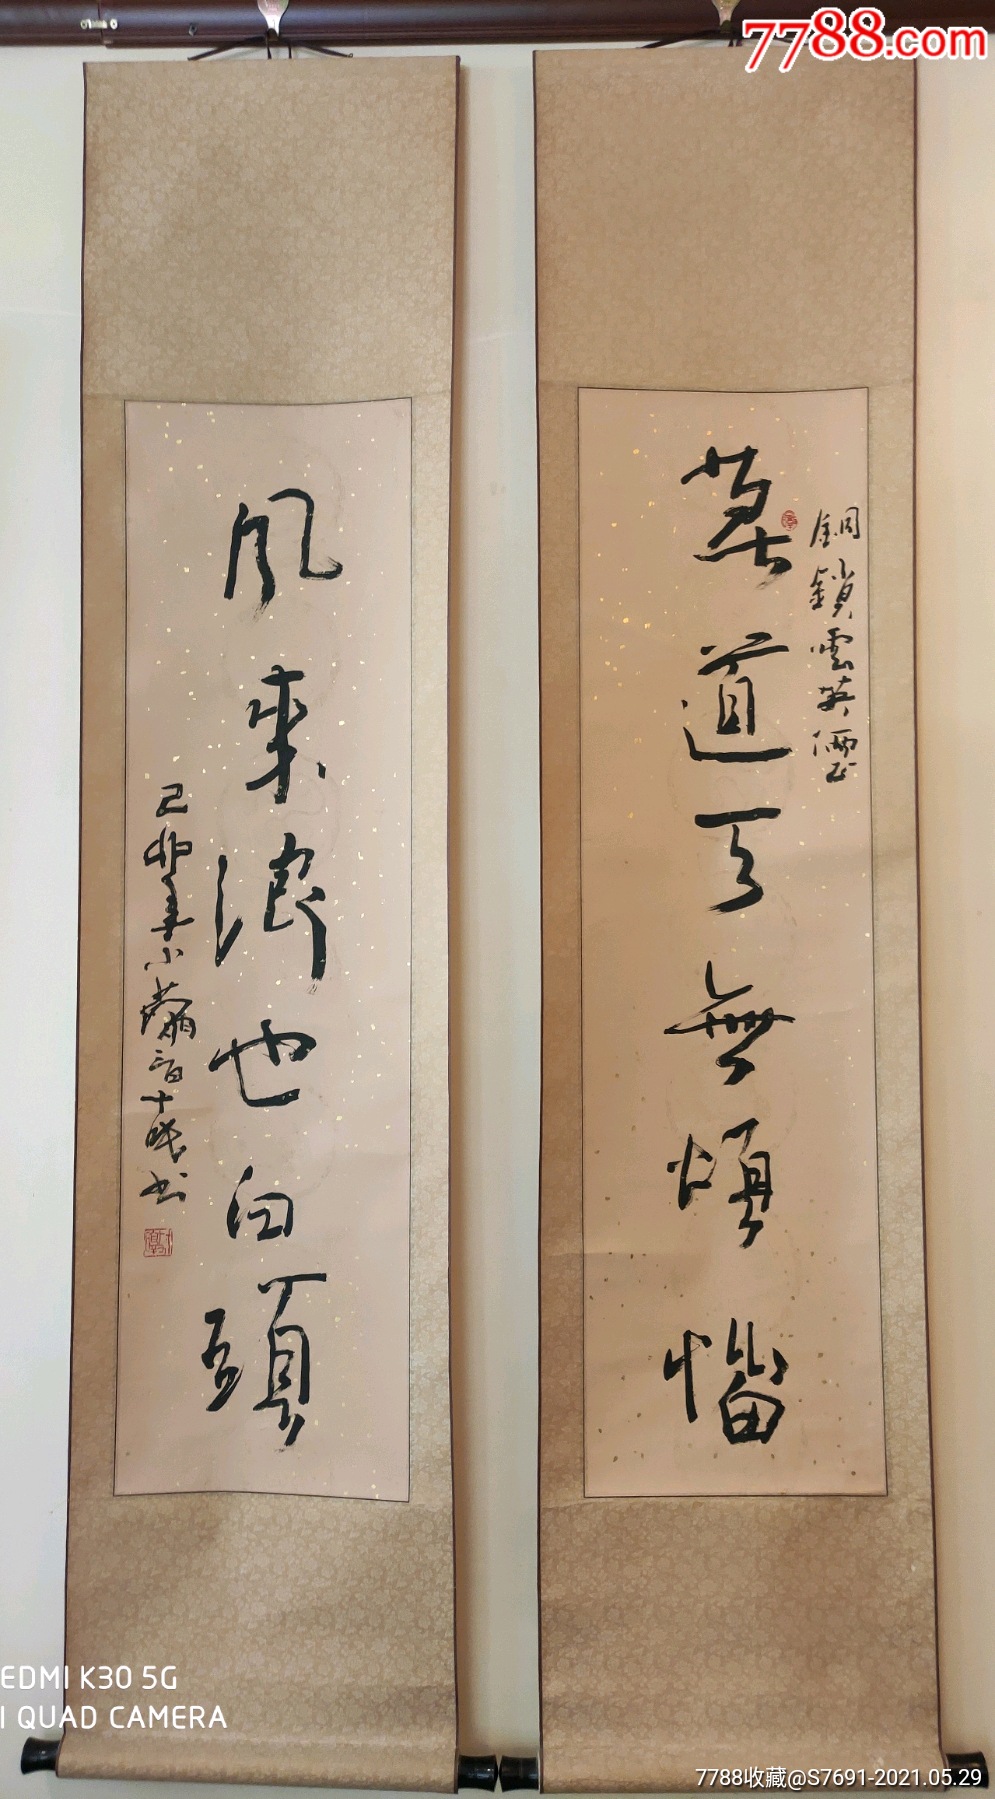 7788.com
銅鎖雲英儷正
莫道無煩惱
風來浪也白頭
己卯年小十書
EDMI K30 5G
I QUAD CAMERA
7788收藏@S7691-2021.05.29